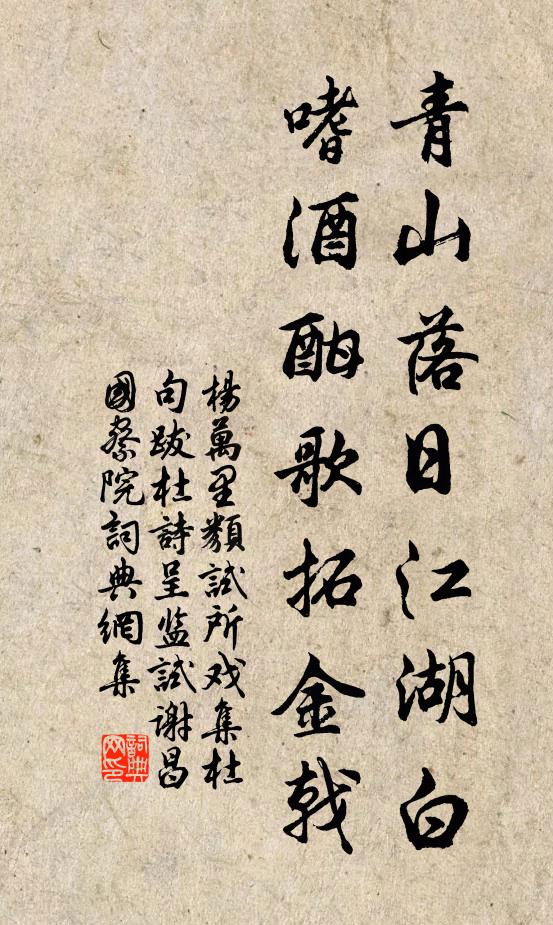 青山落日江湖白
嗜酒酣歌拓金戟
楊萬里類試所戏集杜
句跋杜詩呈监試谢昌
國察院詞典網集
詞典
网印